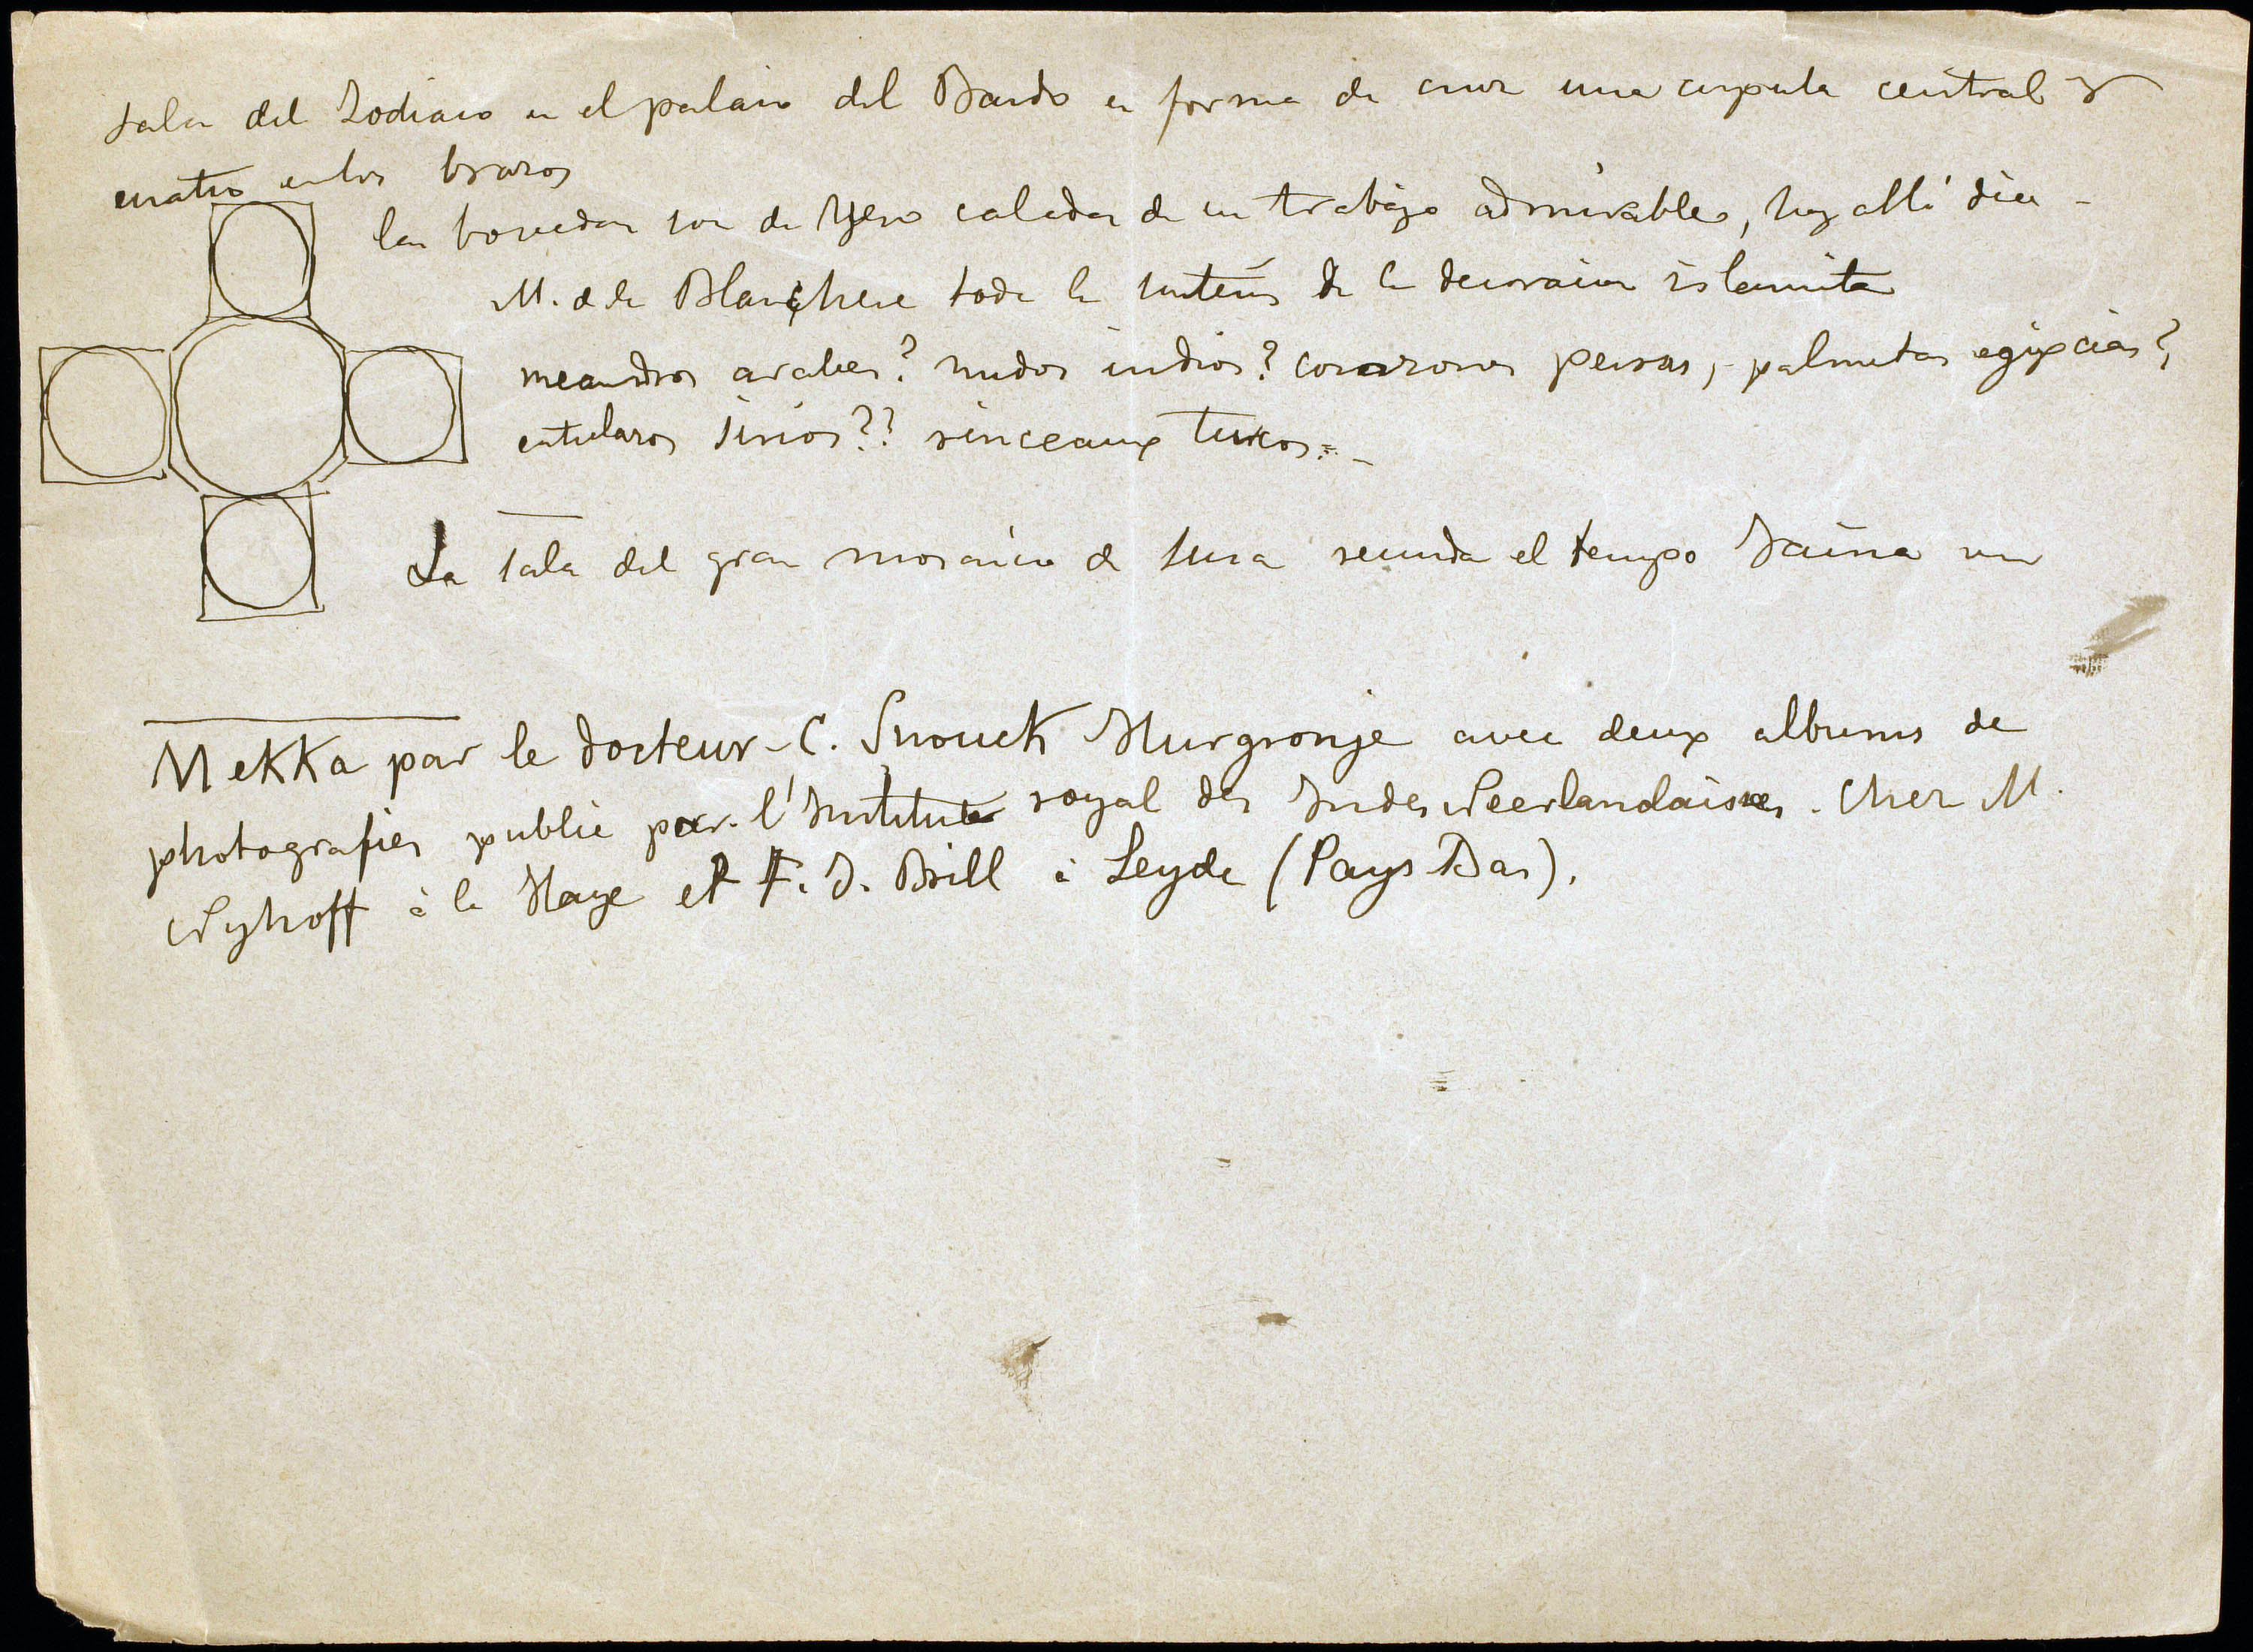 sala del Zodiaco en el palacio del Bardo en forma de cruz una cupula central y
cuatro en los brazos
las bovedas son de Yeso caladas de un trabajo admirable, hay allí dice
M. de la Blanchere toda la sintesis de la decoracion islamita
meandros arabes? nudos indios? corazones persas, palmetas egipcias?,
entrelazos sirios?? rinceaux turcos.
La sala del gran mosaico de Susa recuerda el tempo Jaina
Mekka par le docteur C. Snouck Hurgronje avec deux albums de
photografies publié par l'Institute royal des Indes Neerlandaises. Chez M.
Nyhoff à la Haye et F. J. Brill à Leyde (Pays Bas).